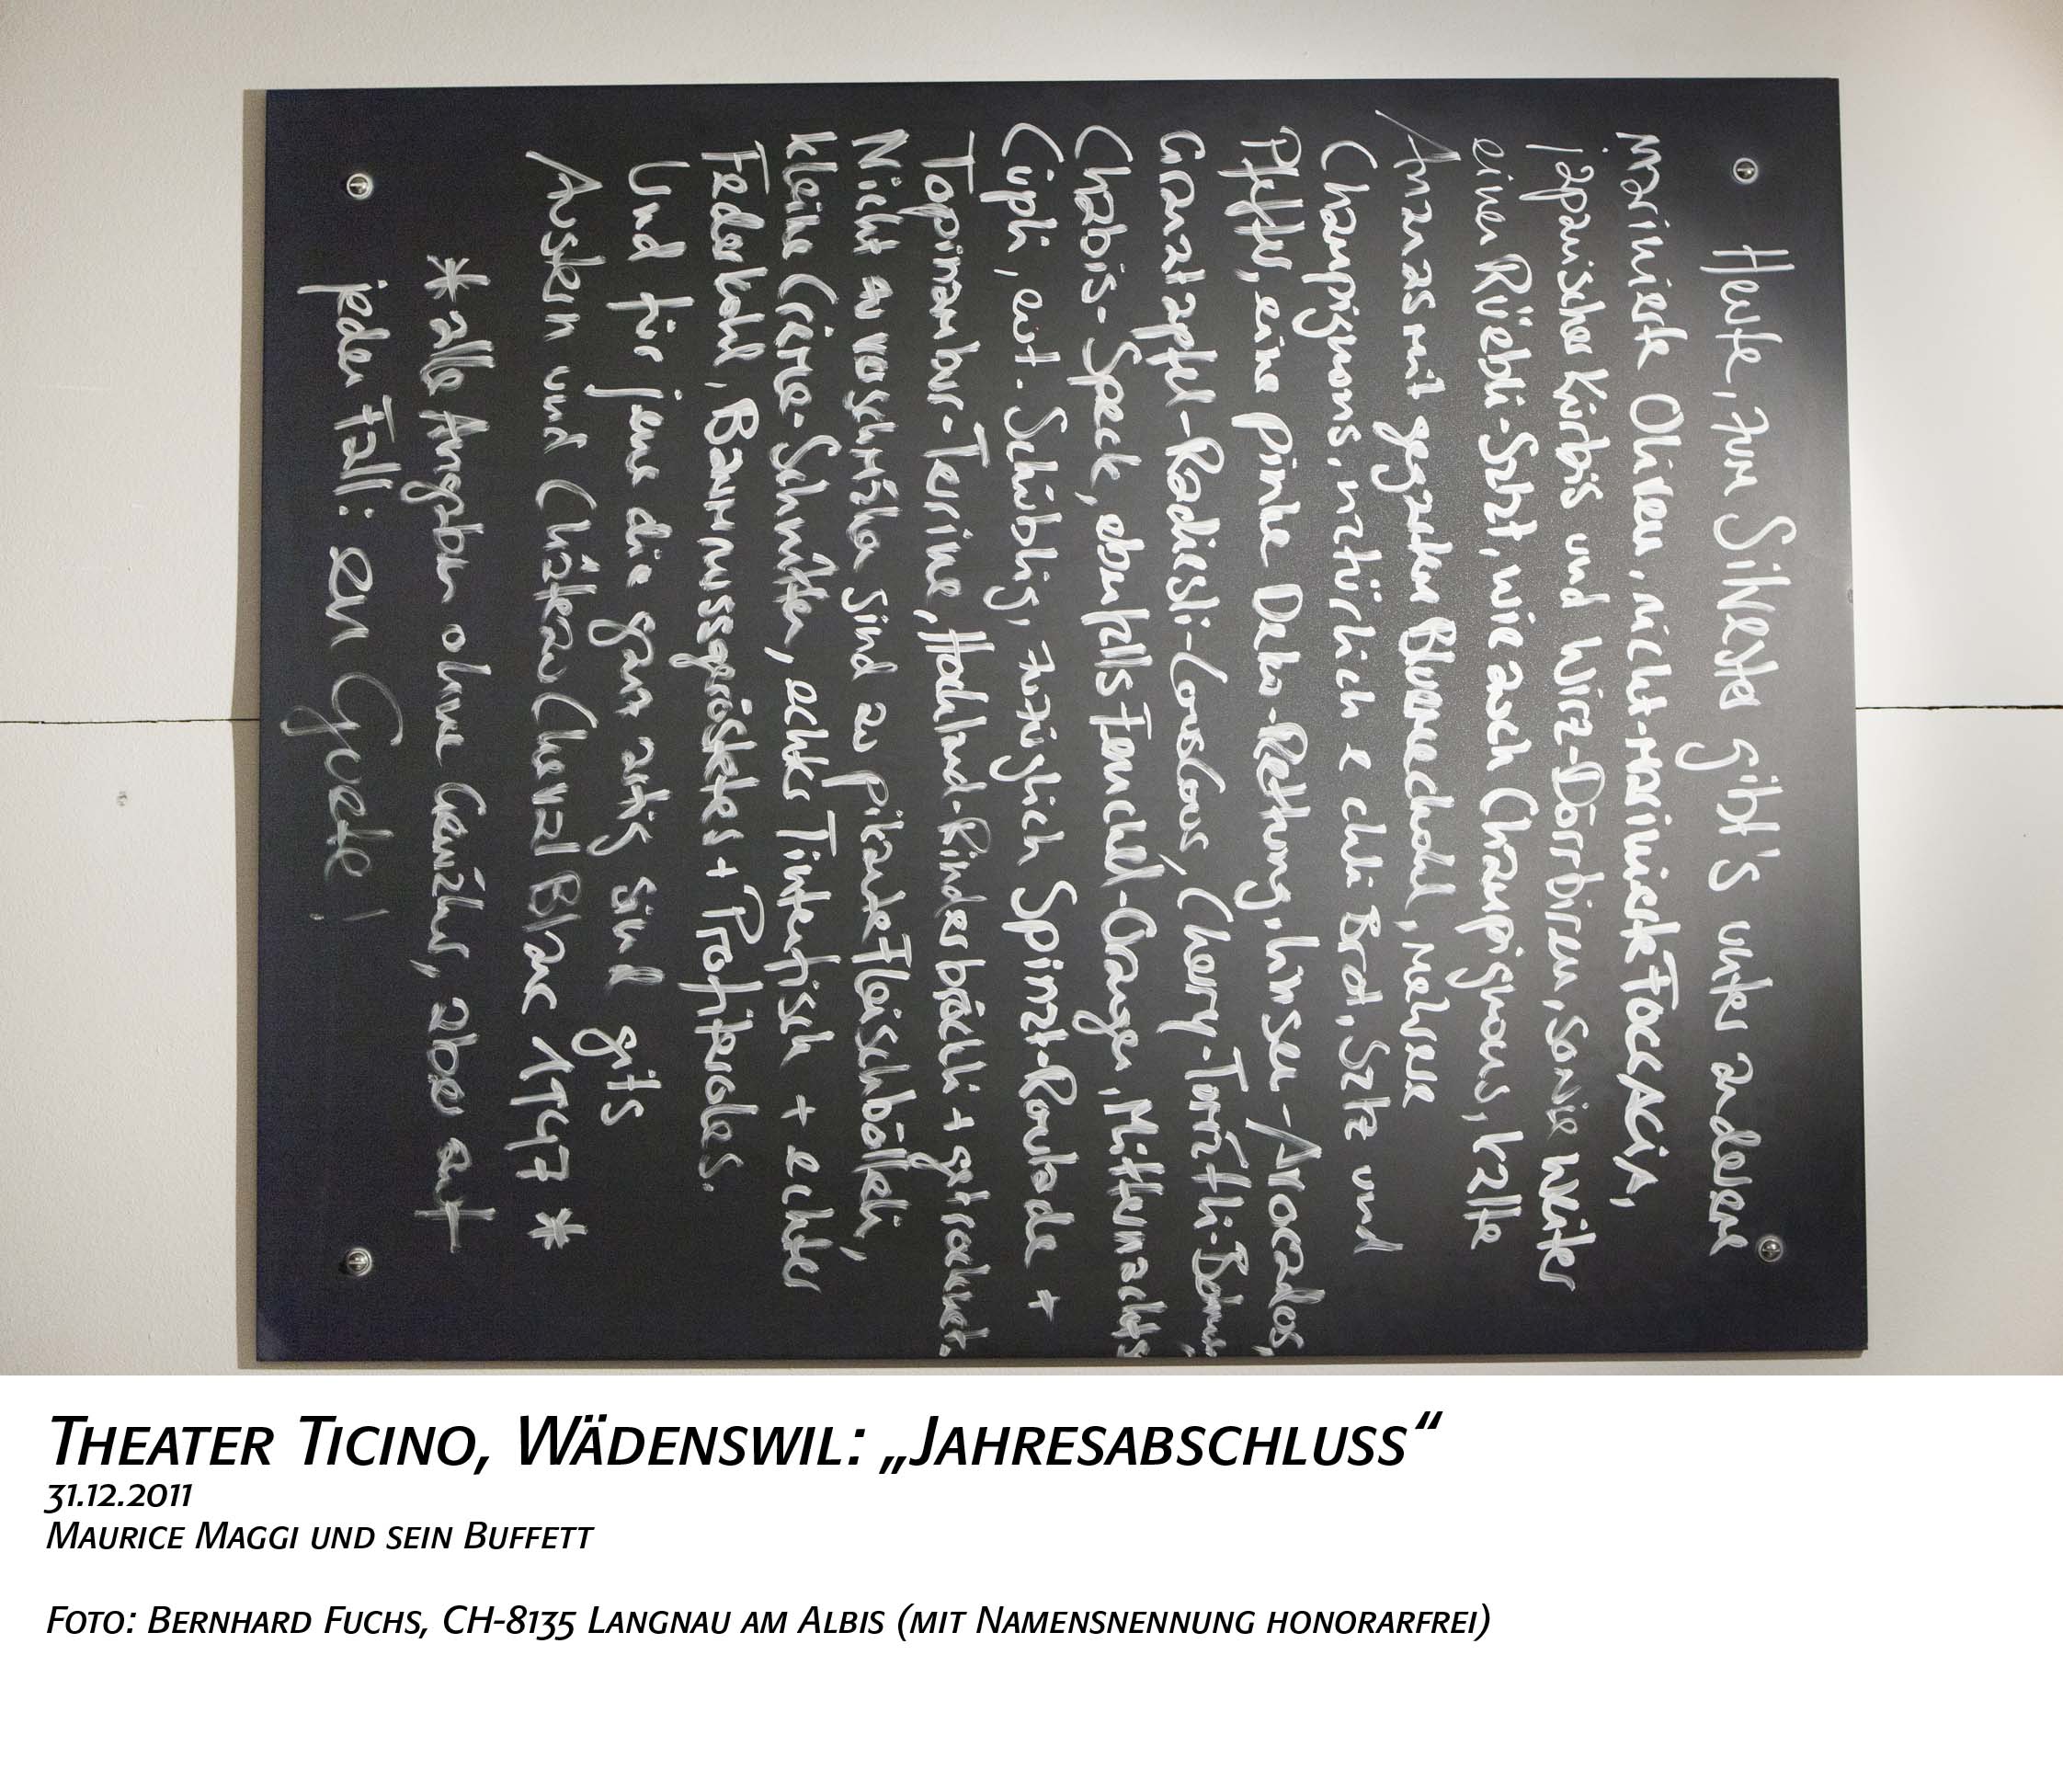 Heute, zum Silvester gibt's unter anderem
marinierte Oliven, nicht-marinierte Foccacia,
japanischer Kürbis und Wirz-Dörrbirnen, sowie weiter
einen Rüebli-Salat, wie auch Champignons, kalte
Ananas mit gegartem Blumenchohl, mehrere
Champignons, natürlich e chli Brot, Salz und
Pfeffer, eine pinke Deko-Rettung, Linsen-Avocados,
Granatapfel-Radiesli-CousCous, Cherry-Tomätli-Bäum,
Chabis-Speck, ebenfalls Fenchel-Orangen, Mitternachts
Cüpli, evt. Schüblig, zuzüglich Spinat-Roulade +
Topinambur-Terrine, Hochland-Rinderbäckli + getrocknet.
Nicht zu verschmähen sind au pikante Fleischbölleli,
kleine Crème-Schnitten, echter Tintenfisch + echter
Federkohl, Baumnussgröstetes + Profiteroles.
Und für jene die ganz artig sind gits
Austern und Château Cheval Blanc 1947 *
* alle Angaben ohne Gewähr, aber auf
jeden Fall: en Guete!
THEATER TICINO, WÄDENSWIL: „JAHRESABSCHLUSS“
31.12.2011
MAURICE MAGGI UND SEIN BUFFETT
FOTO: BERNHARD FUCHS, CH-8135 LANGNAU AM ALBIS (MIT NAMENSNENNUNG HONORARFREI)